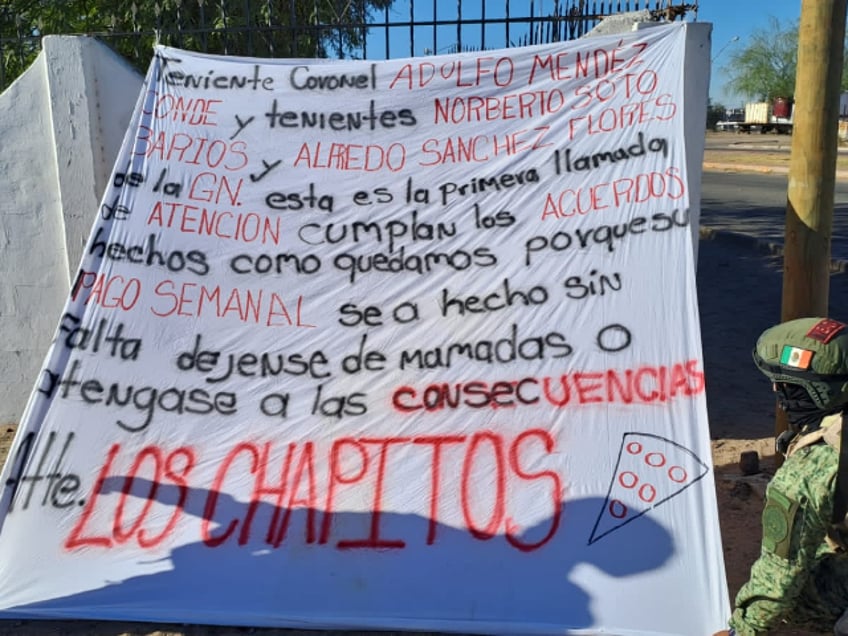 Teniente Coronel ADOLFO MENDEZ
CONDE y tenientes NORBERTO SOTO
BARIOS y ALFREDO SANCHEZ FLORES
de la GN. esta es la primera llamada
de ATENCION cumplan los ACUERDOS
hechos como quedamos porquesu
PAGO SEMANAL se a hecho sin
falta dejense de mamadas o
atengase a las consecUENCIAS
Atte. LOS CHAPITOS